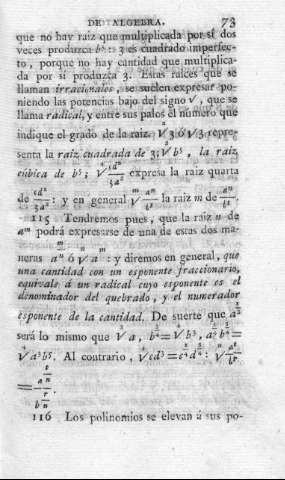 DE ALGEBRA. 73
que no hay raiz que multiplicada por sí dos
veces produzca b⁵: 3 es cuadrado imperfec-
to, porque no hay cantidad que multiplica-
da por sí produzca 3. Estas raices que se
llaman irracionales, se suelen expresar po-
niendo las potencias bajo del signo √, que se
llama radical, y entre sus palos el número que
indique el grado de la raiz. √3 ó √3 repre-
senta la raiz cuadrada de 3; ∛b⁵, la raiz
cúbica de b⁵; expresa la raiz quarta
de : y en general la raiz m de
115 Tendremos pues, que la raiz n de
aᵐ podrá expresarse de una de estas dos ma-
neras ó : y diremos en general, que
una cantidad con un esponente fraccionario,
equivale á un radical cuyo esponente es el
denominador del quebrado, y el numerador
esponente de la cantidad. De suerte que
será lo mismo que
Al contrario,
116 Los polinomios se elevan á sus po-